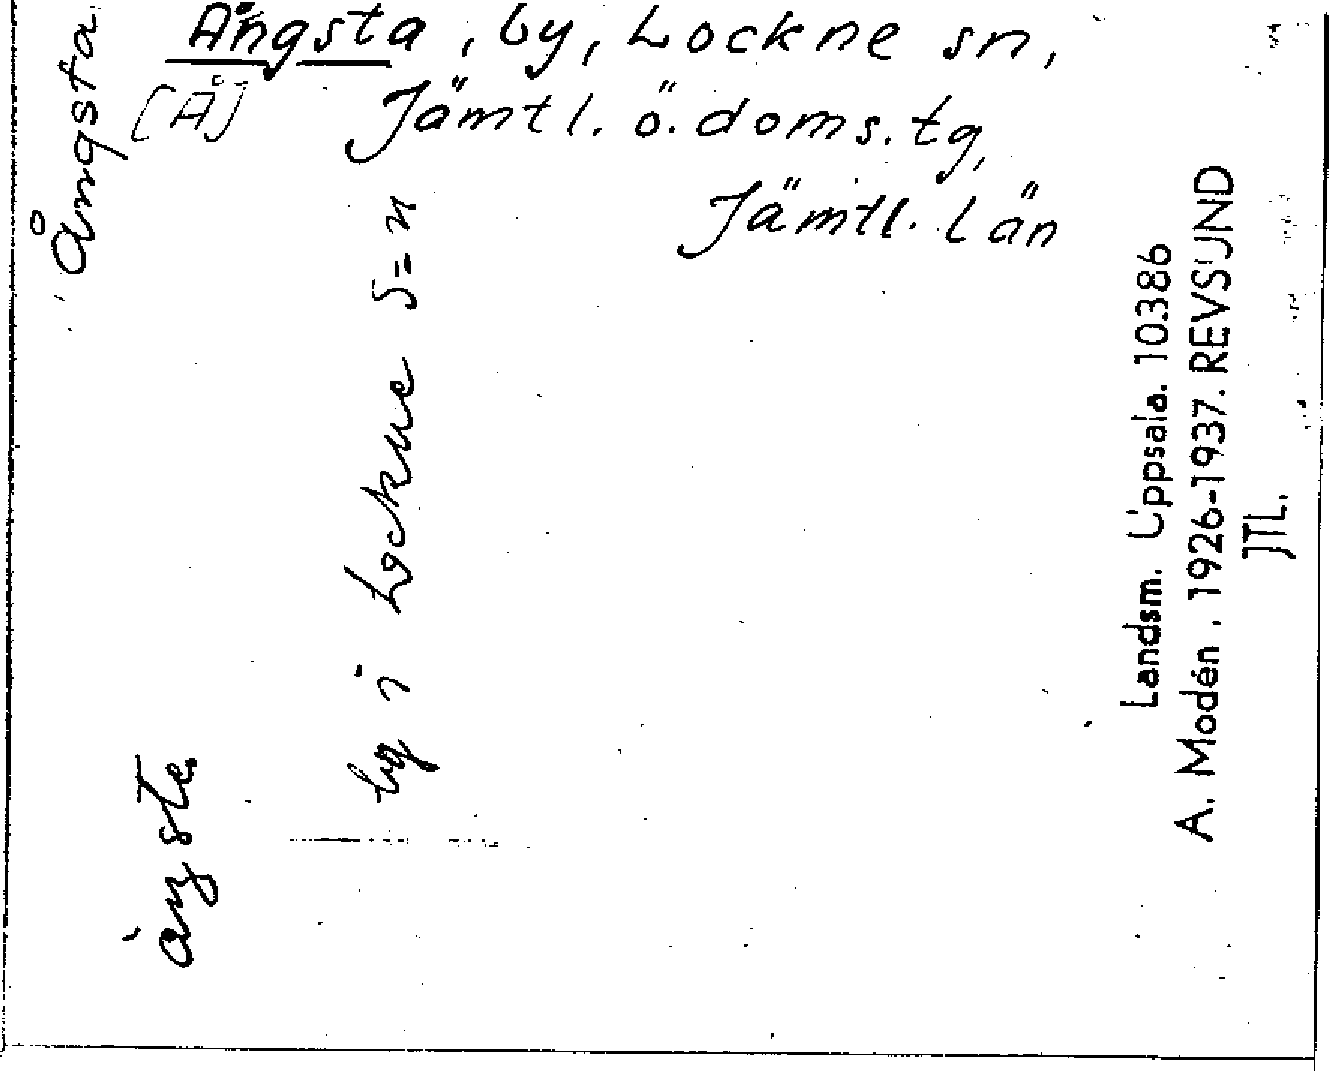 Ångsta, by, Lockne sn,
[Å] Jämtl. ö. doms. tg,
Jämtl. län
Ångsta
by i Lockne s=n
Landsm. Uppsala. 10386
A. Modén. 1926-1937. REVSUND
JTL.